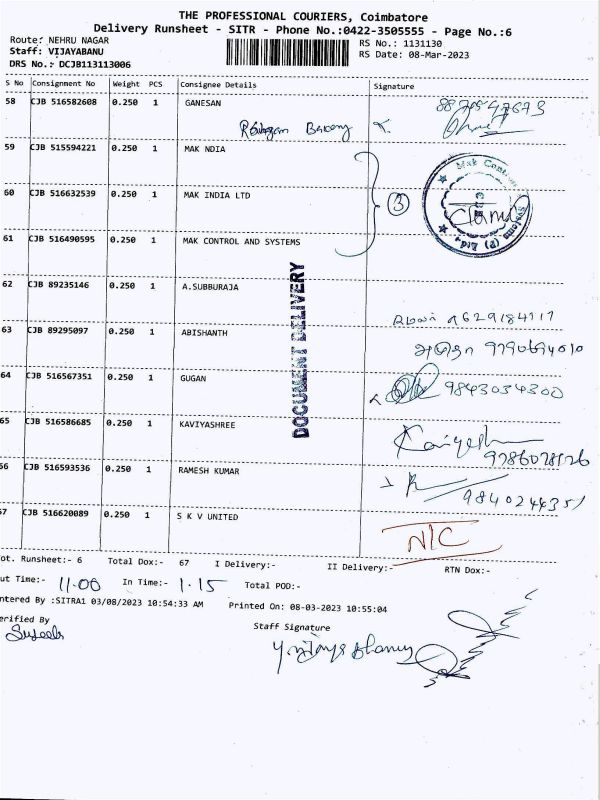 THE PROFESSIONAL COURIERS, Coimbatore
Delivery Runsheet - SITR - Phone No.:0422-3505555 - Page No.:6
Route: NEHRU NAGAR
RS No.: 1131130
Staff: VIJAYABANU
RS Date: 08-Mar-2023
DRS No.: DCJB113113006
S No Consignment No Weight PCS Consignee Details Signature
58 CJB 516582608 0.250 1 GANESAN
59 CJB 515594221 0.250 1 MAK NDIA
60 CJB 516632539 0.250 1 MAK INDIA LTD
3
Mak Control Systems (P) Ltd.
61 CJB 516490595 0.250 1 MAK CONTROL AND SYSTEMS
62 CJB 89235146 0.250 1 A.SUBBURAJA
9629184117
DOCUMENT DELIVERY
63 CJB 89295097 0.250 1 ABISHANTH
64 CJB 516567351 0.250 1 GUGAN
9843034300
65 CJB 516586685 0.250 1 KAVIYASHREE
66 CJB 516593536 0.250 1 RAMESH KUMAR
9840244351
67 CJB 516620089 0.250 1 S K V UNITED
N/C
ot. Runsheet:- 6 Total Dox:- 67 I Delivery:- II Delivery:- RTN Dox:-
ut Time:- 11.00 In Time:- 1.15 Total POD:-
ntered By :SITRA1 03/08/2023 10:54:33 AM Printed On: 08-03-2023 10:55:04
erified By
Staff Signature